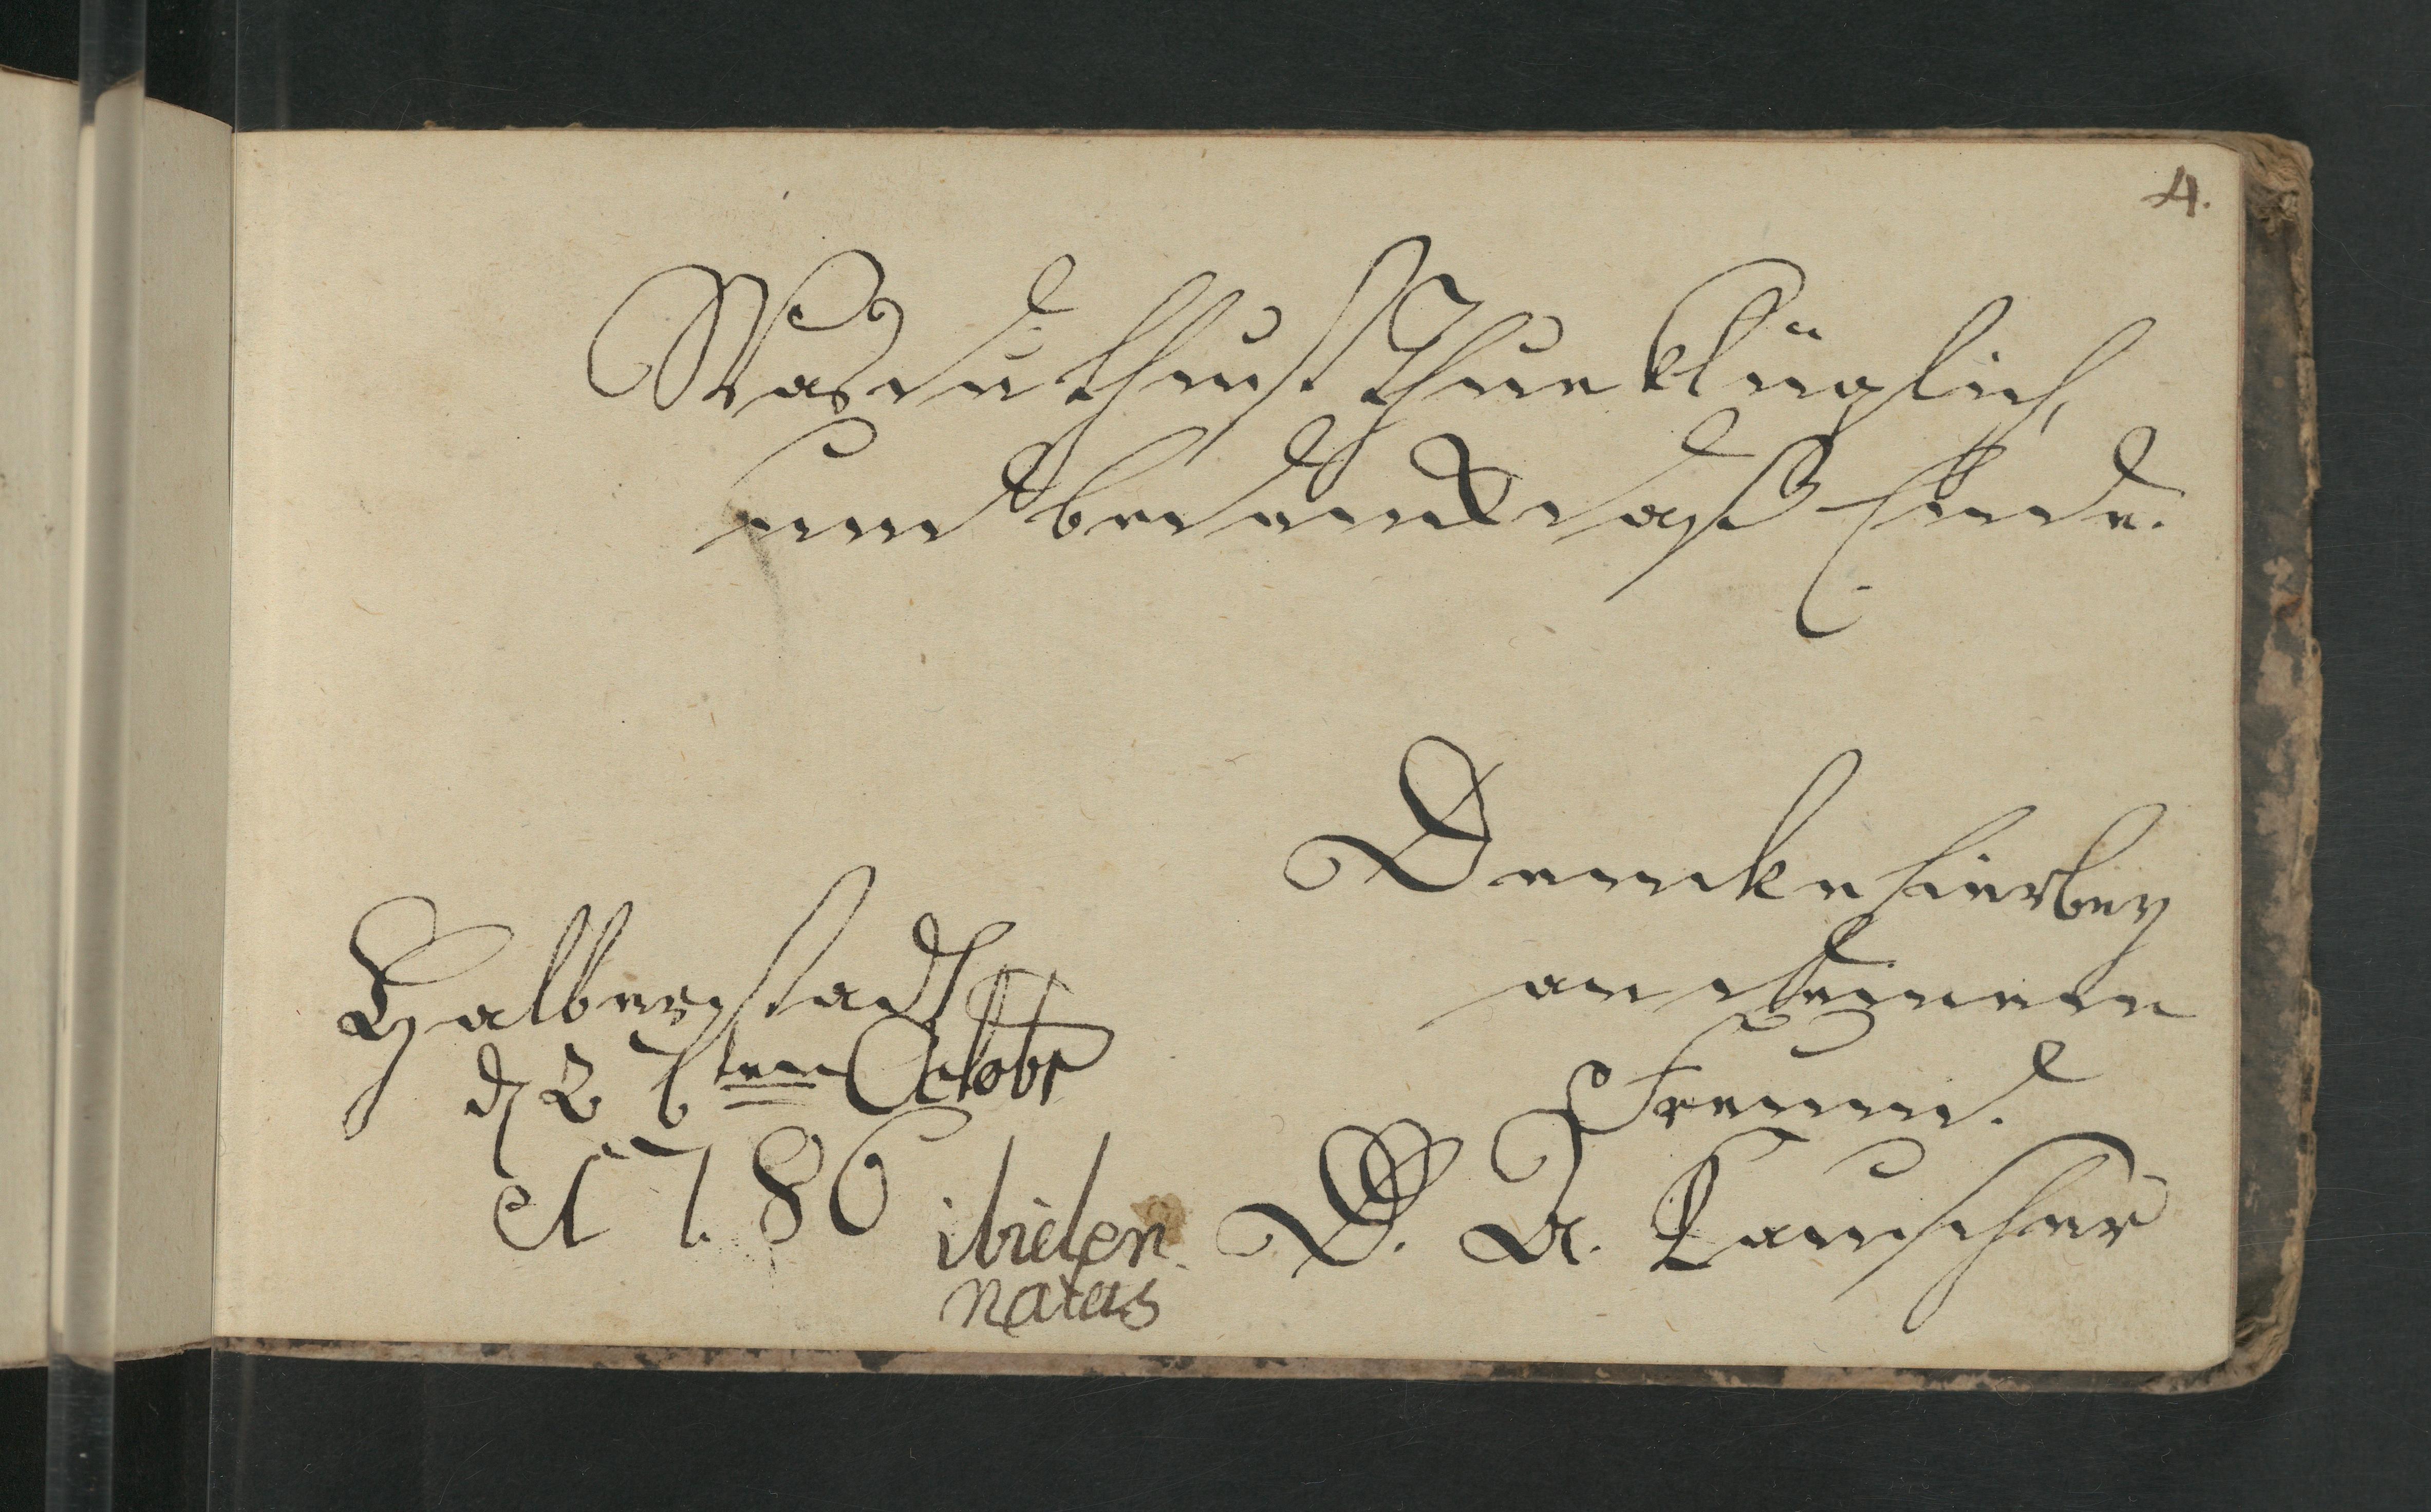 4.
Was du thust Thue klüglich,
und bedencke daß Ende.
Dencke hierbey
an deinen
Freund.
D. A. Lauscher
Halberstadt
d 27ten Octobr
1786
ibiden
natus